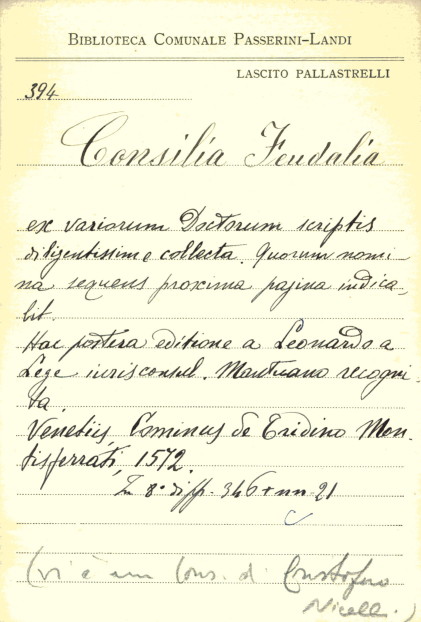 BIBLIOTECA COMUNALE PASSERINI-LANDI
LASCITO PALLASTRELLI
394
Consilia Feudalia
ex variorum Doctorum scriptis
diligentissime collecta. Quorum nomi-
na sequens proxima pagina indica-
bit.
Hac postera editione a Leonardo a
Lege iurisconsul. Mantuano recogni-
ta.
Venetiis, Cominus de Tridino Mon-
tisferrati, 1572.
In 8° di ff. 346 + nn 21
(vi è un Cons. di Cristoforo
Nicelli.)